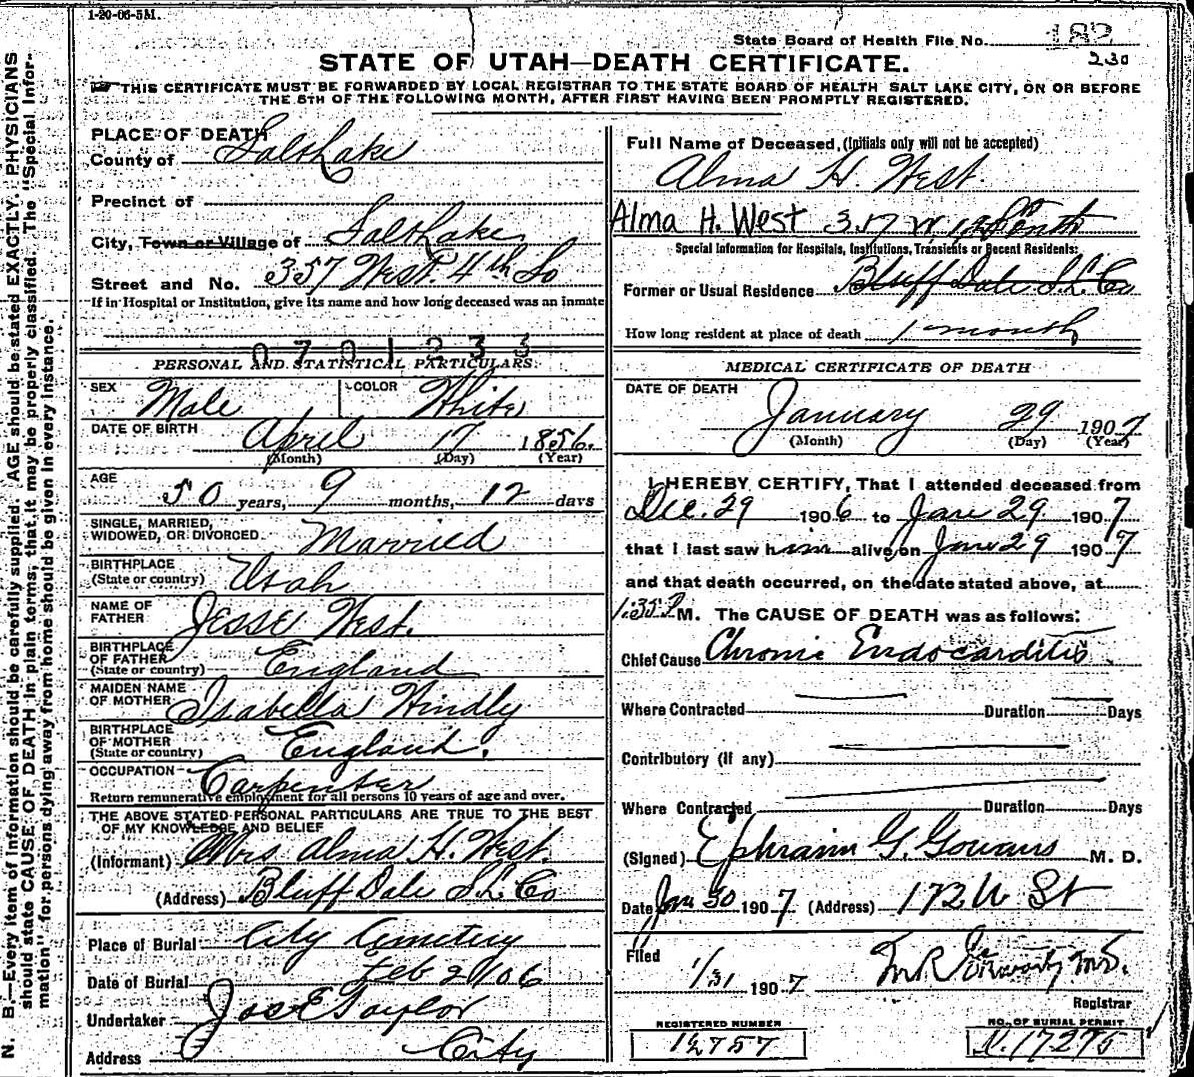 1-20-06-5M.
State Board of Health File No. 182
230
STATE OF UTAH—DEATH CERTIFICATE.
THIS CERTIFICATE MUST BE FORWARDED BY LOCAL REGISTRAR TO THE STATE BOARD OF HEALTH SALT LAKE CITY, ON OR BEFORE
THE 5TH OF THE FOLLOWING MONTH, AFTER FIRST HAVING BEEN PROMPTLY REGISTERED.
N. B.—Every item of information should be carefully supplied. AGE should be stated EXACTLY. PHYSICIANS
should state CAUSE OF DEATH in plain terms, that it may be properly classified. The "Special Infor-
mation" for persons dying away from home should be given in every instance.
PLACE OF DEATH
County of Salt Lake
Precinct of
City, Town or Village of Salt Lake
Street and No. 357 West 4th So
If in Hospital or Institution, give its name and how long deceased was an inmate
0 7 0 1 2 3 3
PERSONAL AND STATISTICAL PARTICULARS.
SEX Male COLOR White
DATE OF BIRTH April 17 1856.
(Month) (Day) (Year)
AGE 50 years, 9 months, 12 days
SINGLE, MARRIED,
WIDOWED, OR DIVORCED Married
BIRTHPLACE
(State or country) Utah
NAME OF
FATHER Jesse West.
BIRTHPLACE
OF FATHER
(State or country) England
MAIDEN NAME
OF MOTHER Isabella Hindly
BIRTHPLACE
OF MOTHER
(State or country) England.
OCCUPATION Carpenter
Return remunerative employment for all persons 10 years of age and over.
THE ABOVE STATED PERSONAL PARTICULARS ARE TRUE TO THE BEST
OF MY KNOWLEDGE AND BELIEF
(Informant) Mrs Alma H. West.
(Address) Bluff Dale S. L. Co
Place of Burial City Cemetery
Date of Burial Feb 2/06
Undertaker Jos E Taylor
Address City
Full Name of Deceased, (Initials only will not be accepted)
Alma H. West.
Alma H. West
Special Information for Hospitals, Institutions, Transients or Recent Residents:
Former or Usual Residence Bluff Dale S. L. Co
How long resident at place of death 1 month
MEDICAL CERTIFICATE OF DEATH
DATE OF DEATH
January 29 1907
(Month) (Day) (Year)
I HEREBY CERTIFY, That I attended deceased from
Dec. 29 1906 to Jan 29 1907
that I last saw him alive on Jan 29 1907
and that death occurred, on the date stated above, at
1:35 P M. The CAUSE OF DEATH was as follows:
Chief Cause Chronic Endocarditis
Where Contracted Duration Days
Contributory (if any)
Where Contracted Duration Days
(Signed) Ephraim G. Gowans M. D.
Date Jan 30 1907 (Address) 172 U St
Filed 1/31 1907
Registrar
REGISTERED NUMBER
12757
NO. OF BURIAL PERMIT
N. 17275